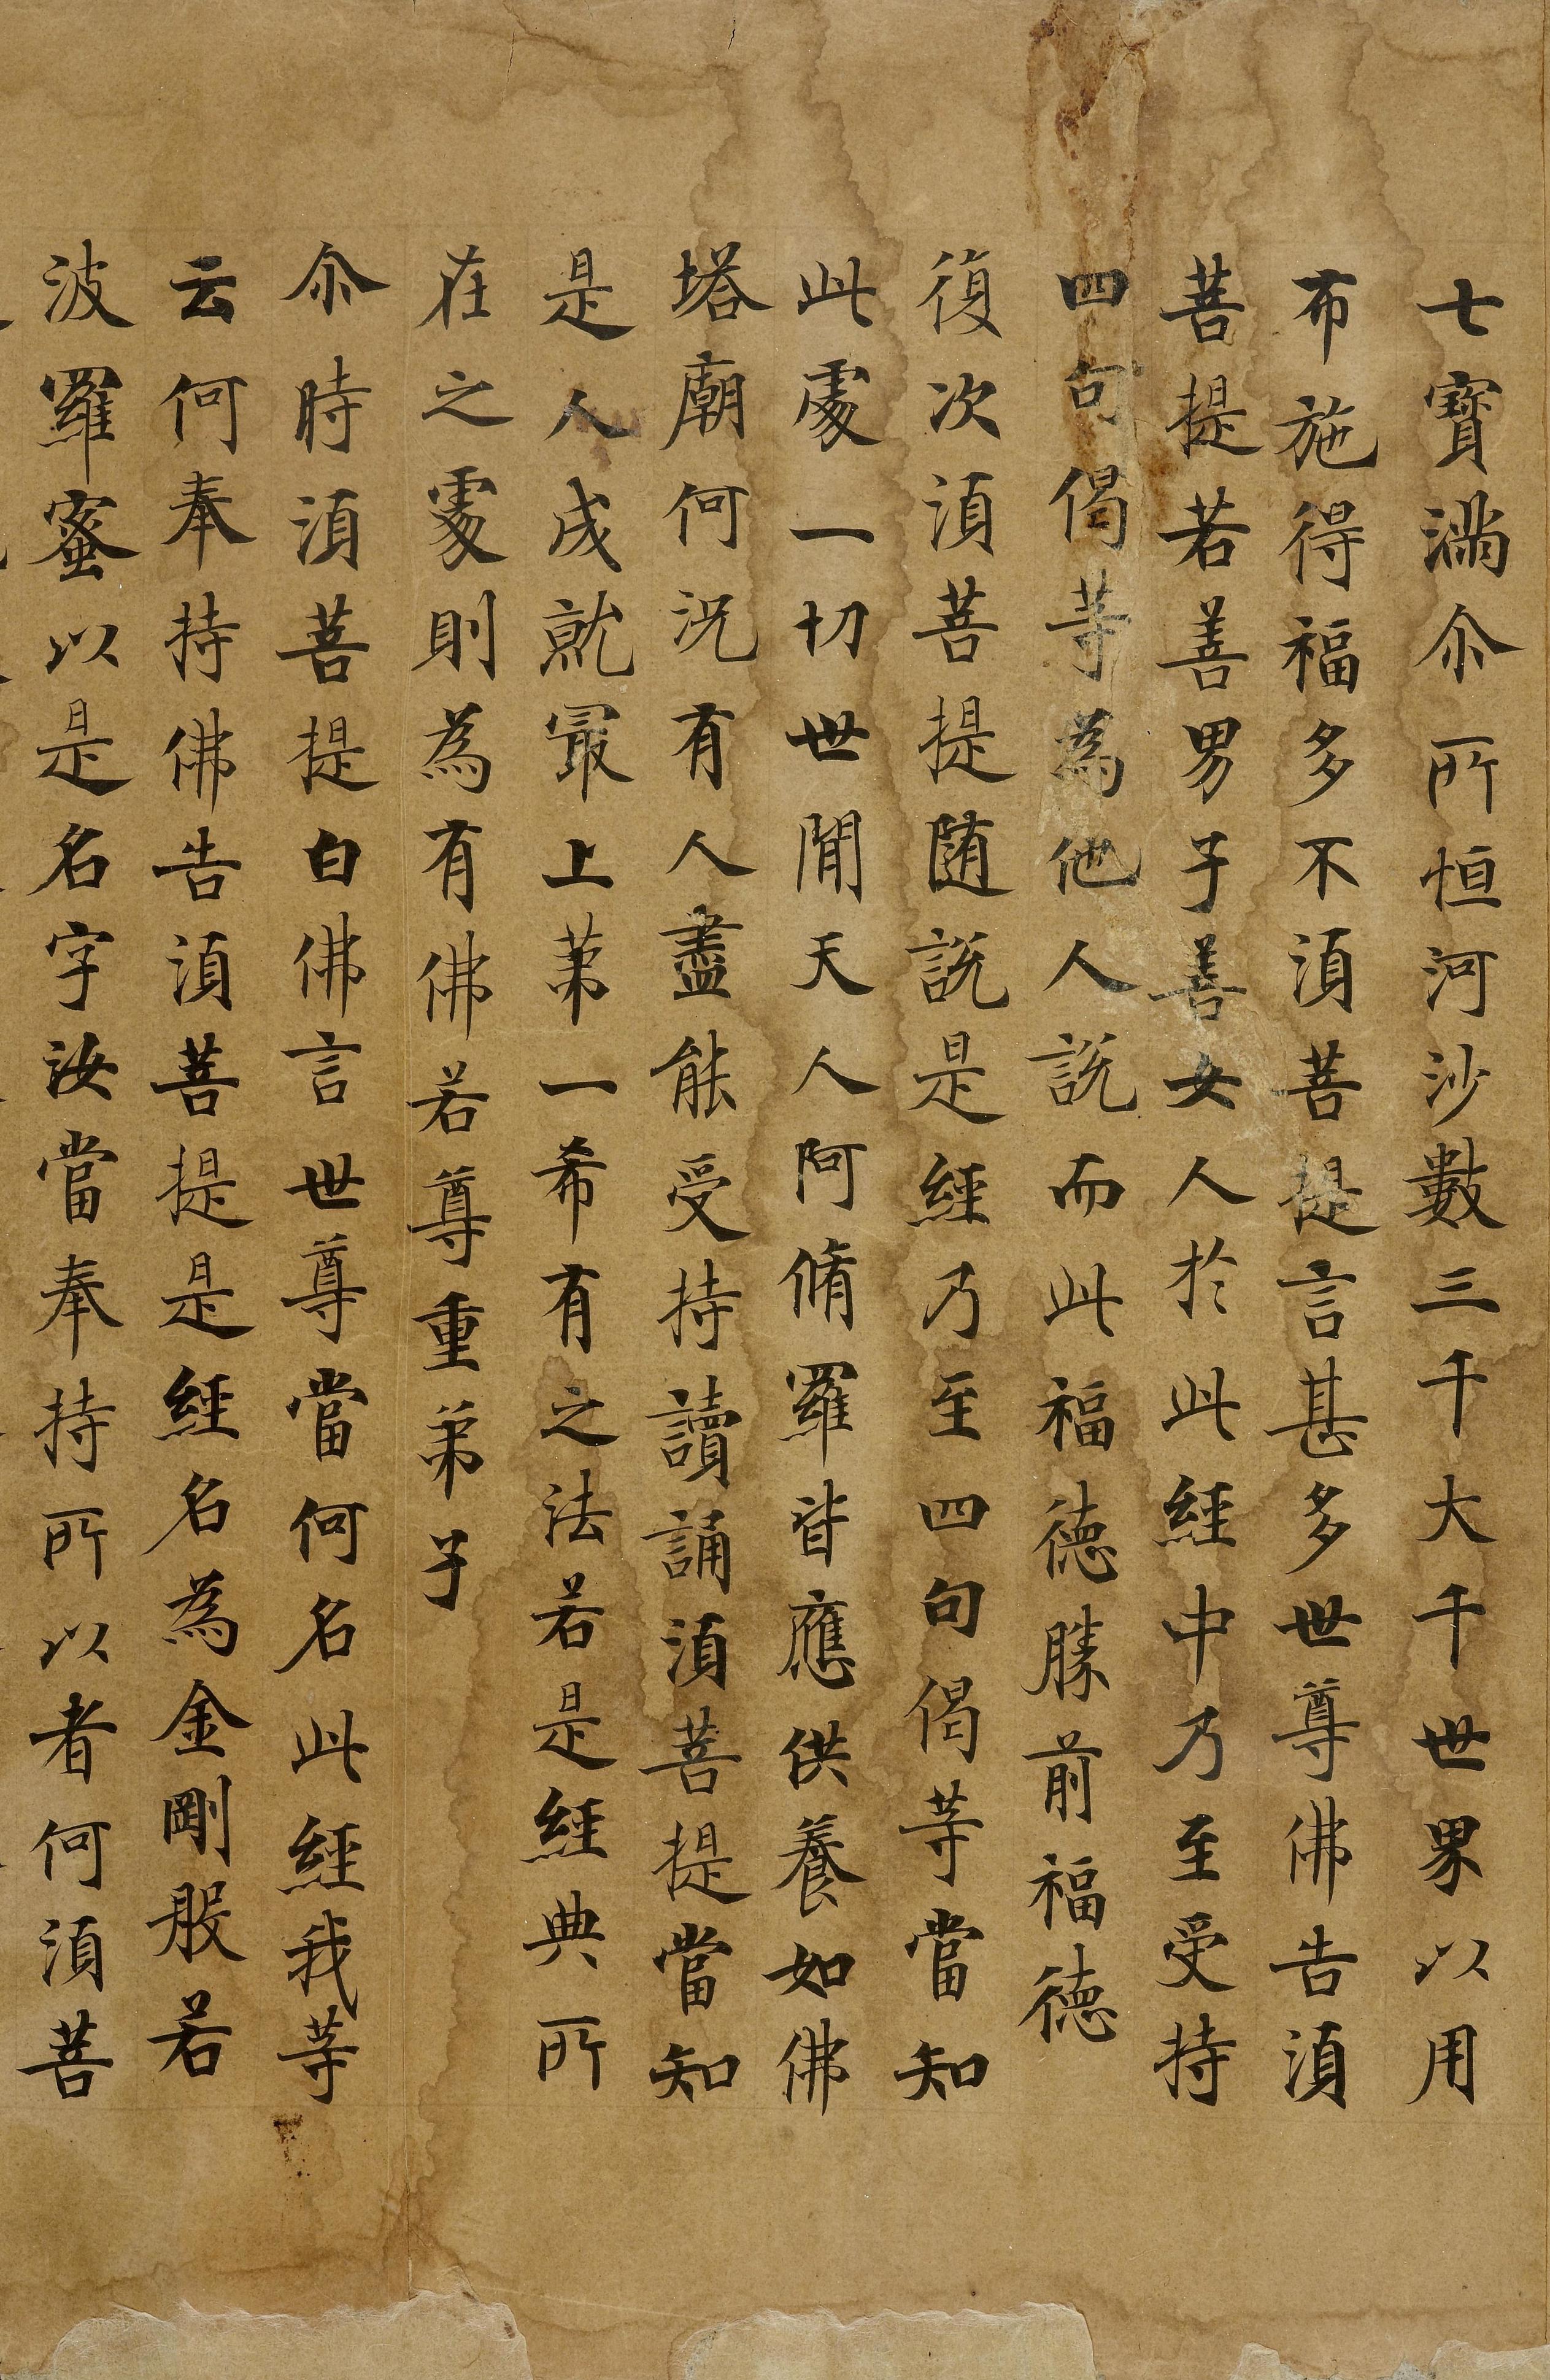 七寳滿尒所恒河沙數三千大千世界以用
布施得福多不湏菩提言甚多世尊佛告湏
菩提若善男子善女人於此經中乃至受持
四句偈等為他人説而此福德勝前福德
復次湏菩提随説是經乃至四句偈等當知
此處一切世間天人阿脩羅皆應供養如佛
塔廟何況有人盡能受持讀誦湏菩提當知
是人成就冣上苐一希有之法若是經典所
在之處則為有佛若尊重弟子
尒時湏菩提白佛言世尊當何名此經我等
云何奉持佛告湏菩提是經名為金剛般若
波羅蜜以是名字汝當奉持所以者何湏菩